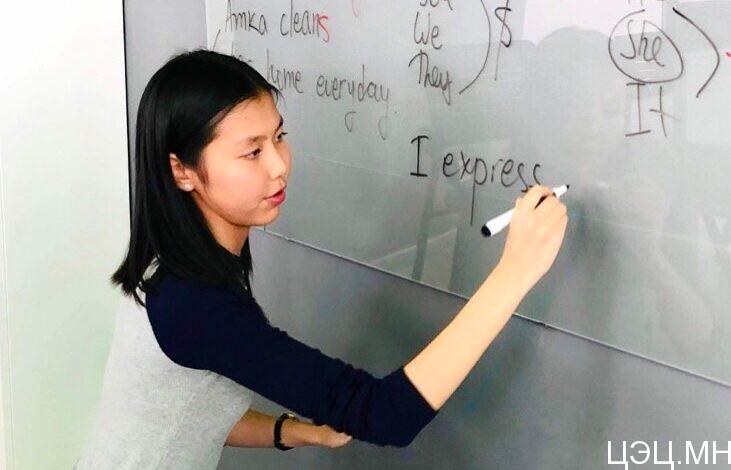 Amka cleans
home everyday.
We
They
$
She
It
I express
ЦЭЦ.МН